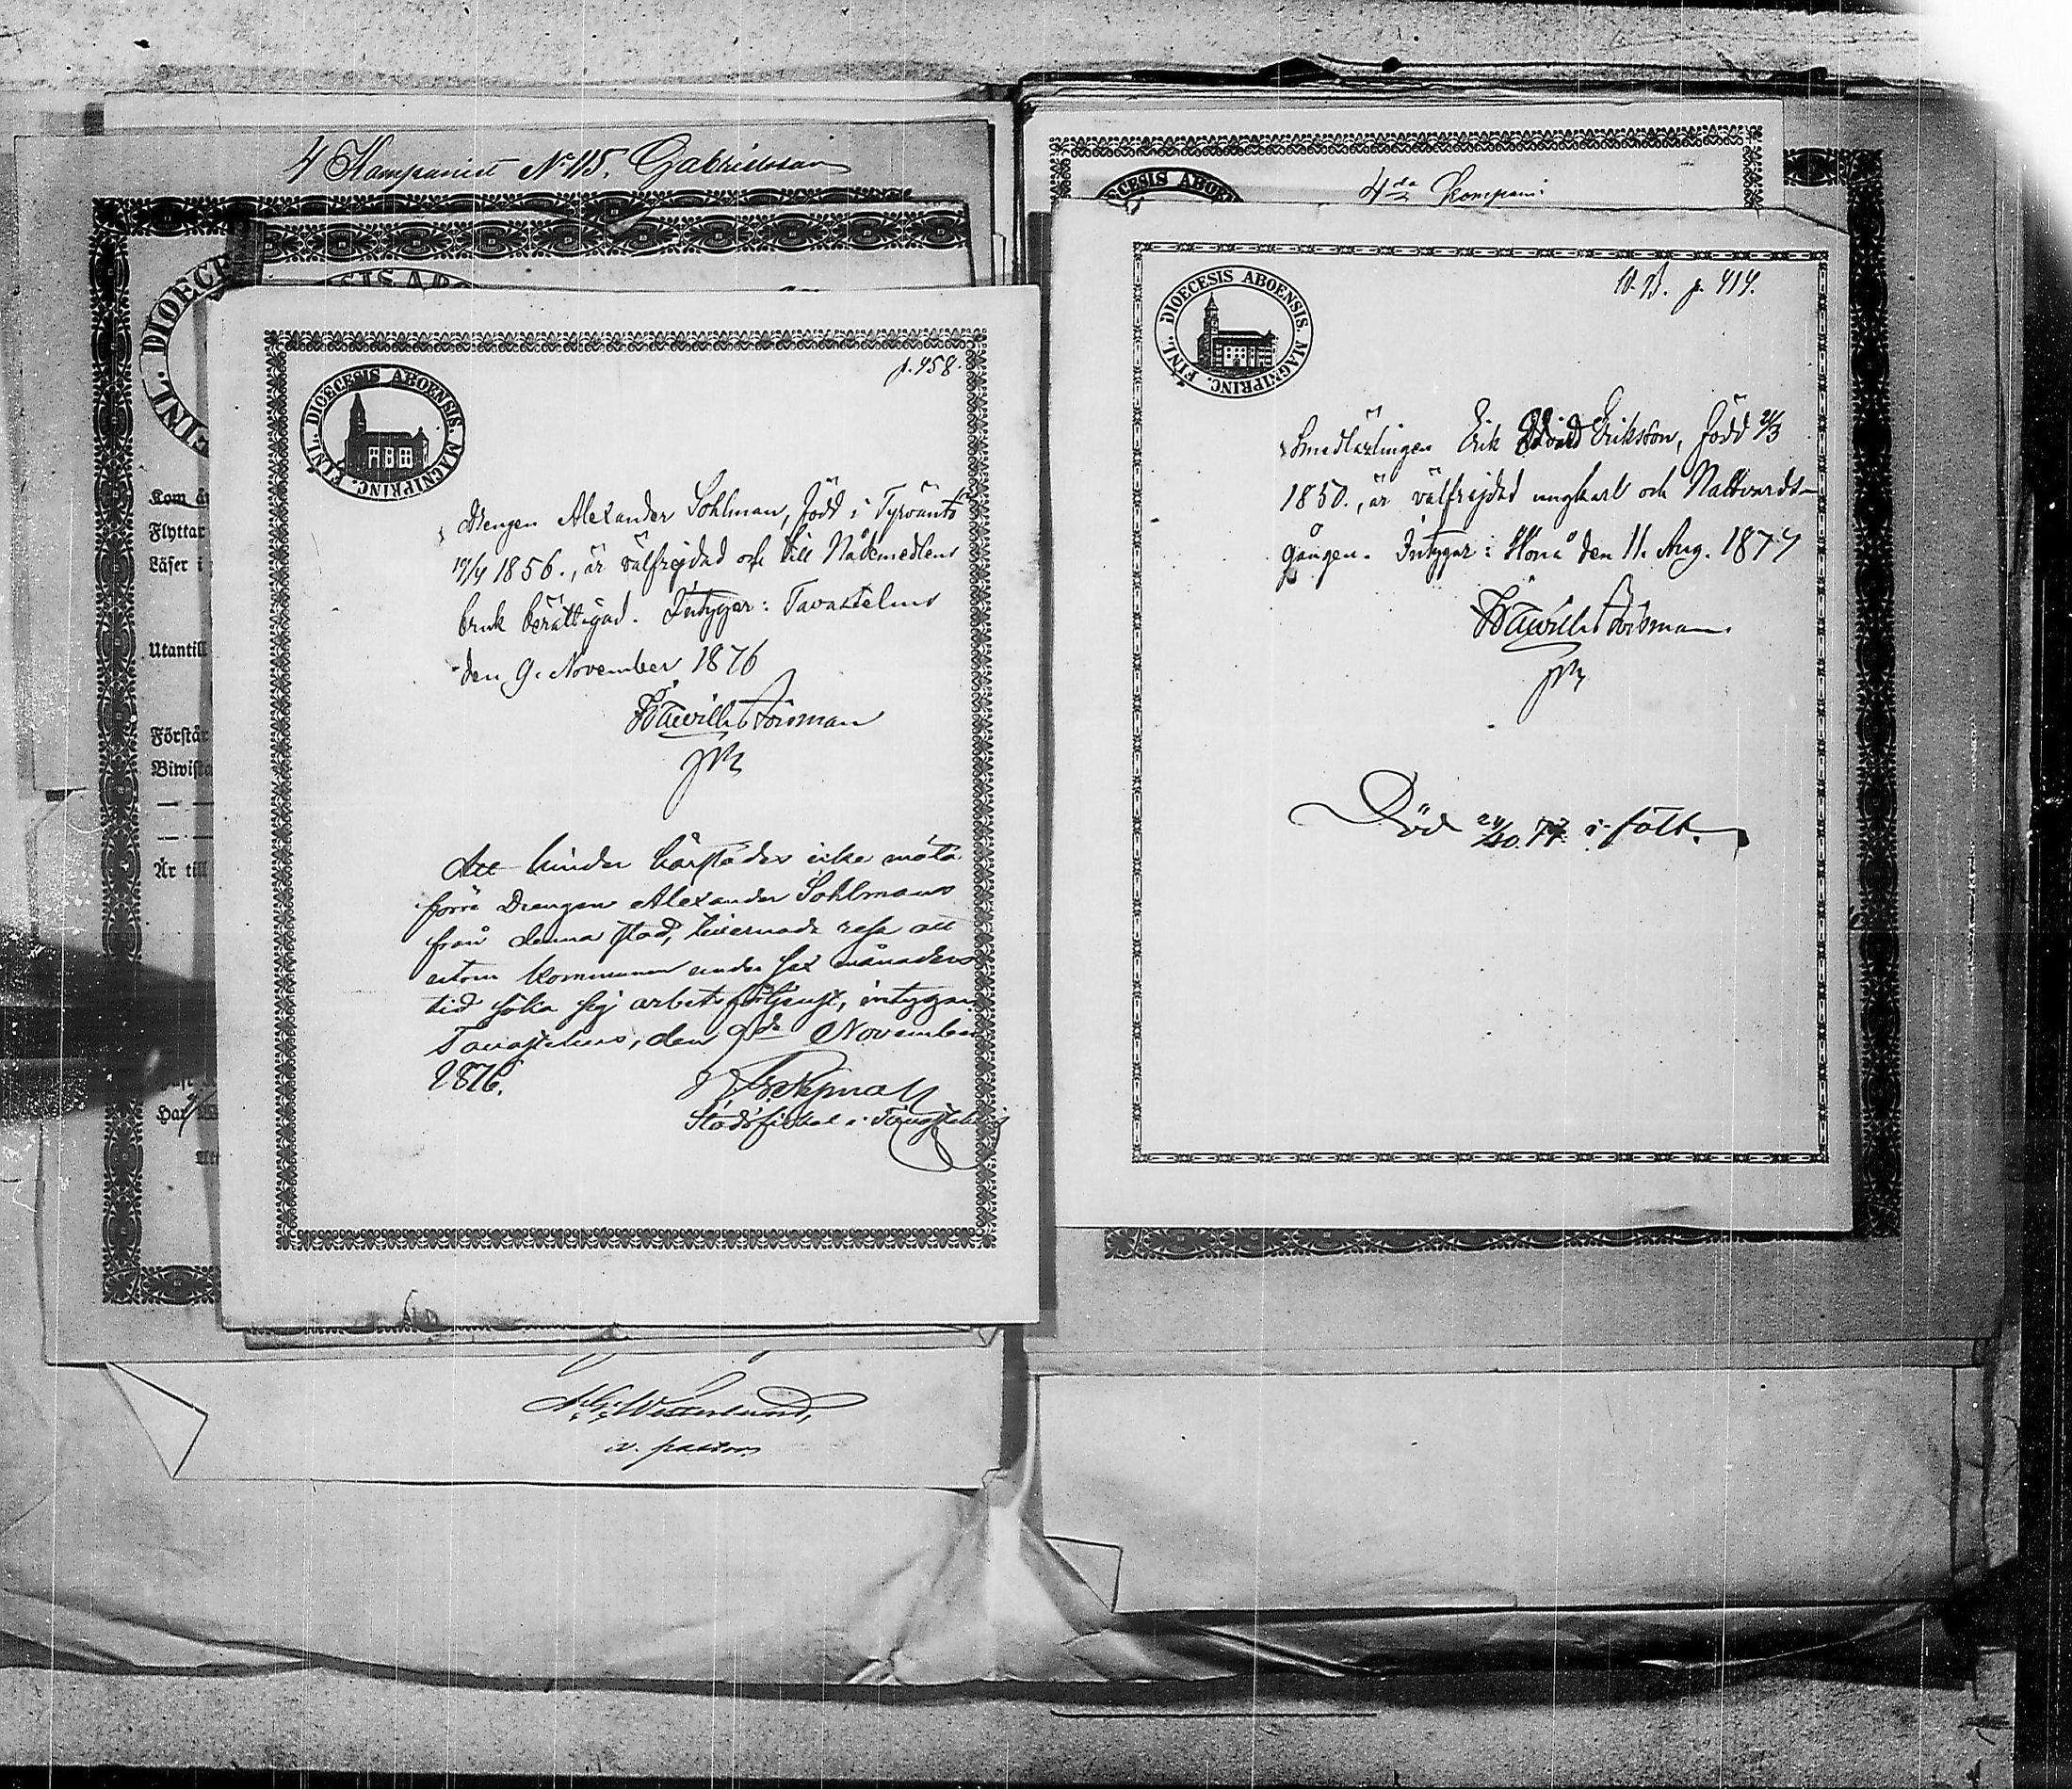 4 Kompaniet No 115. Gabrielsson
DIOECE
FINL.
SIS ABO
Kom
Flyttar
Läser i
Utantill
Förstår
Biwista
Är till
Har
p. 458.
FINL. DIOECESIS ABOENSIS. MAGNIPRINC.
Drengen Alexander Sohlman, född i Tyrväntö
17/4 1856., är välfrejdad och till Nådemedlens
bruk berättigad. Intygar: Tavastehus
den 9. November 1876
K Wilh. Forsman
Att hinder härstädes icke möta
för Drengen Alexander Sohlmans
från denna stad, resa att
utom kommunen under sex månaders
tid söka sig arbetsförtjenst, intygar
Tavastehus, den 9de November
1876.
Stadsfiskal i Tavastehus
Westerlund,
v. pastor
4de Kompani
ECESIS ABOE
p. 414.
FINL. DIOECESIS ABOENSIS. MAGNIPRINC.
Smedlärlingen Erik Eriksson, född 21/3
1850., är välfrejdad ungkarl och Nattvards-
gången. Intygar: den 11. Aug. 1877
K Wilh. Forsman
Död 24/10. 77 i fält.